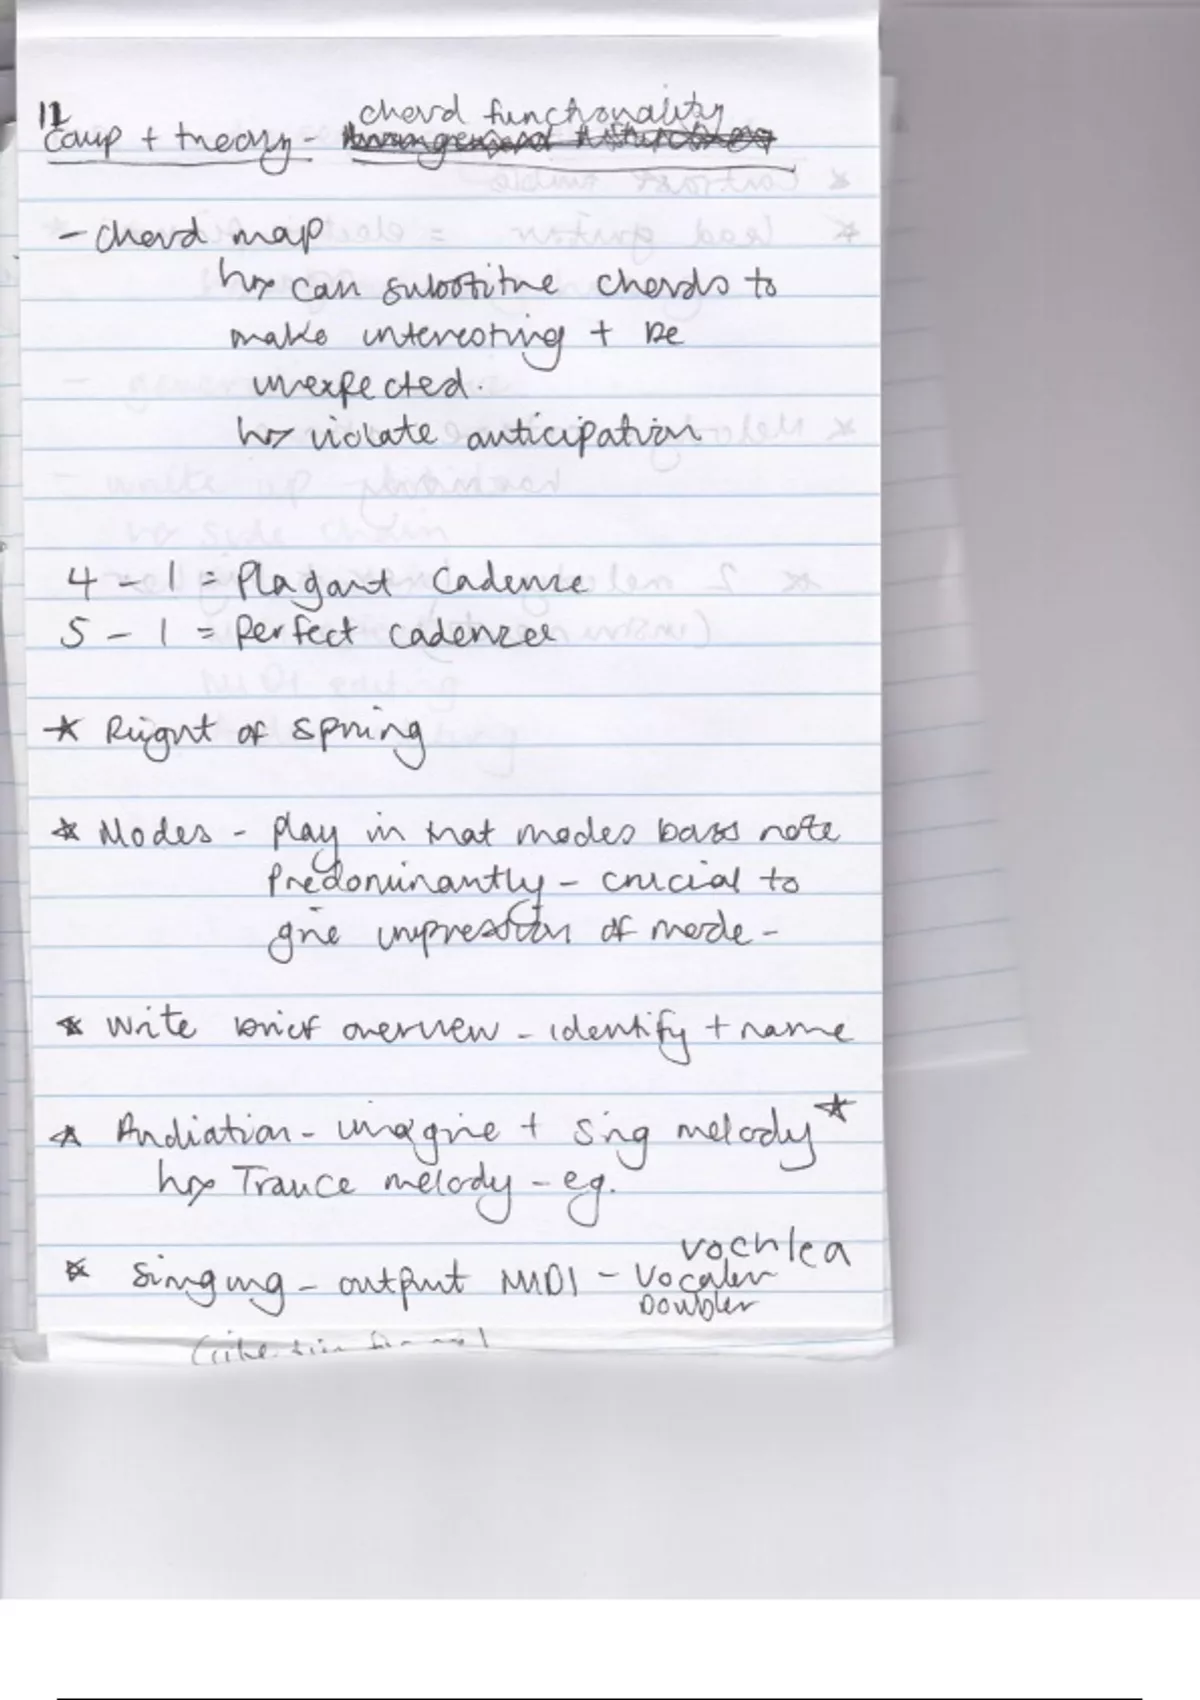 12
Comp + theory - chord functionality
- Chord map
↳ can substitute chords to
make interesting + be
unexpected.
↳ violate anticipation
4 - 1 = Plagant Cadence
5 - 1 = Perfect cadenzee
* Ruight of spring
* Modes - play in that modes bass note
Predominantly - crucial to
give impression of mode -
* Write brief overview - identify + name
* Audiation - imagine + sing melody *
↳ Trance melody - eg.
vochlea
* Singing - output MIDI - Vocaler
Doubler